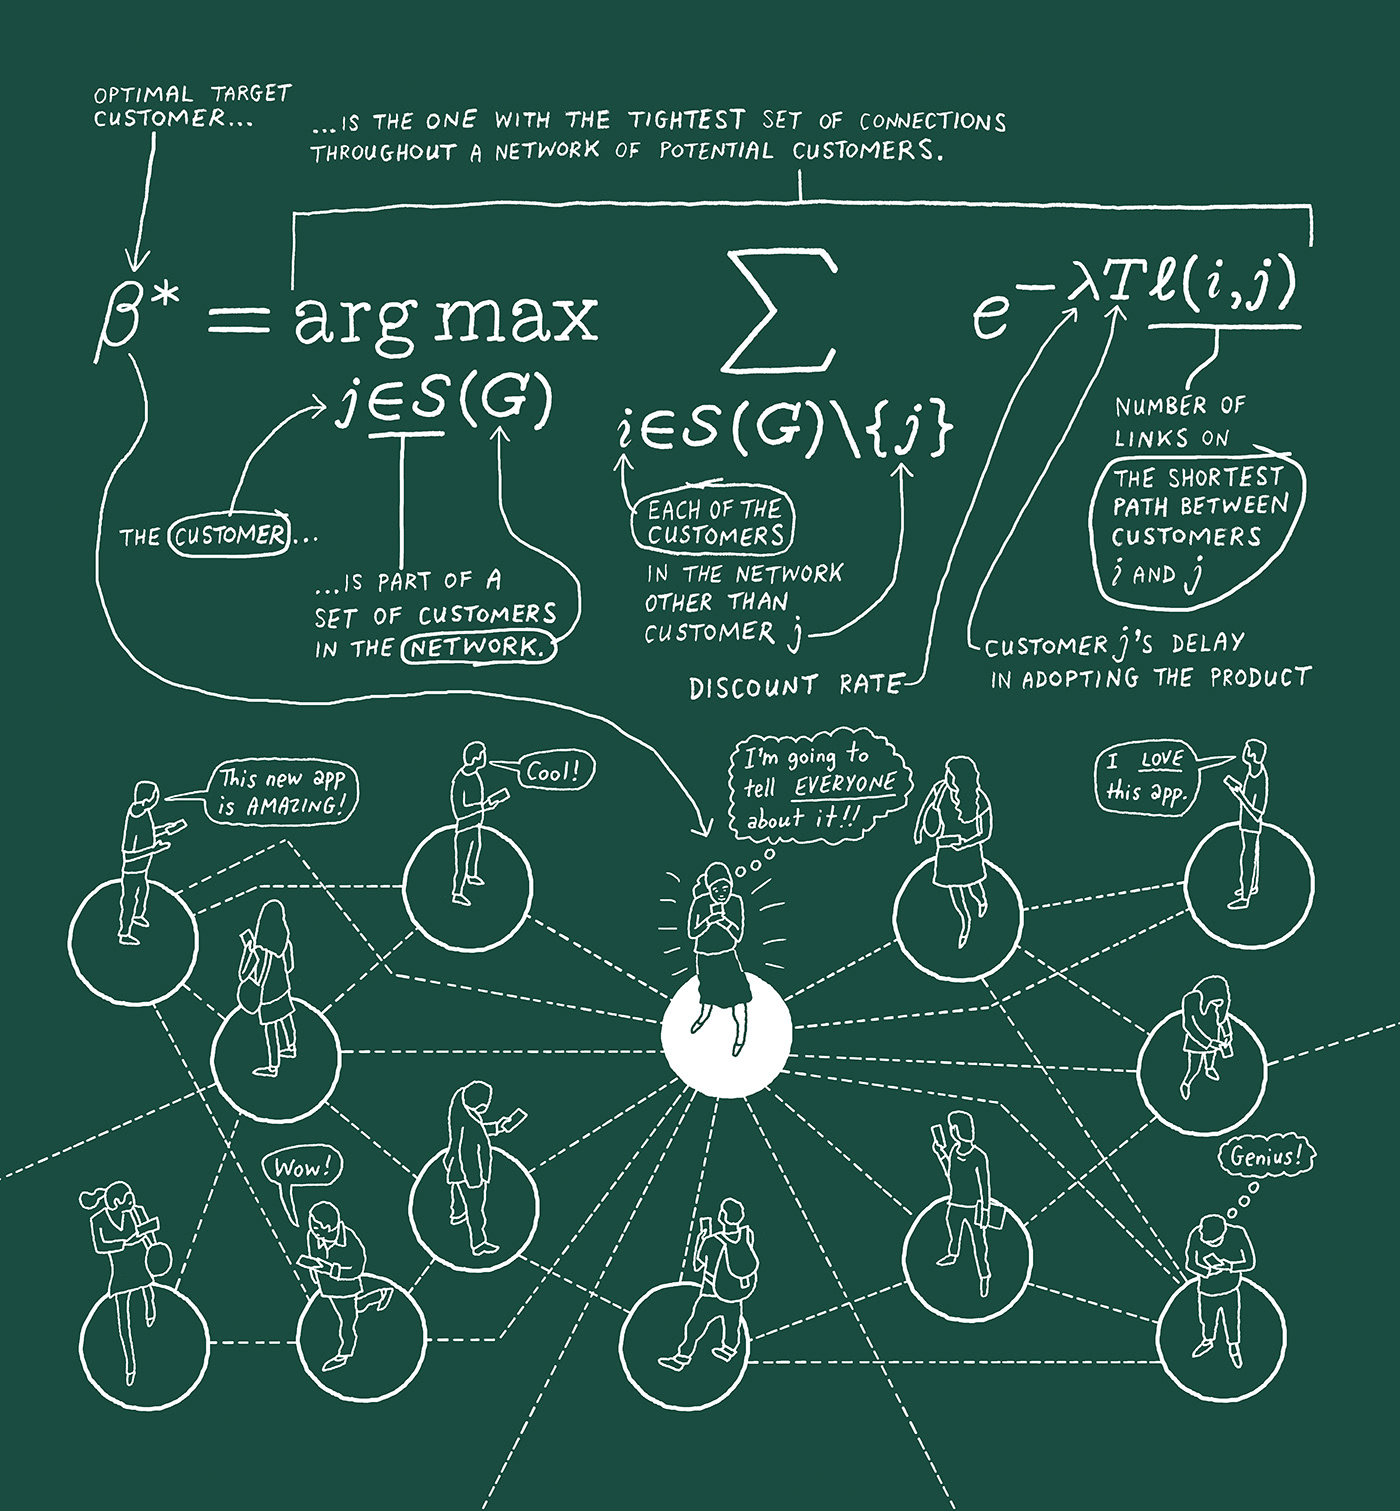 OPTIMAL TARGET
CUSTOMER...
...IS THE ONE WITH THE TIGHTEST SET OF CONNECTIONS
THROUGHOUT A NETWORK OF POTENTIAL CUSTOMERS.
β* = arg max ∑ e^−λTℓ(i,j)
j∈S(G)
i∈S(G)\{j}
THE CUSTOMER...
...IS PART OF A
SET OF CUSTOMERS
IN THE NETWORK.
EACH OF THE
CUSTOMERS
IN THE NETWORK
OTHER THAN
CUSTOMER j
DISCOUNT RATE
NUMBER OF
LINKS ON
THE SHORTEST
PATH BETWEEN
CUSTOMERS
i AND j
CUSTOMER j'S DELAY
IN ADOPTING THE PRODUCT
This new app
is AMAZING!
Cool!
I'm going to
tell EVERYONE
about it!!
I LOVE
this app.
Wow!
Genius!